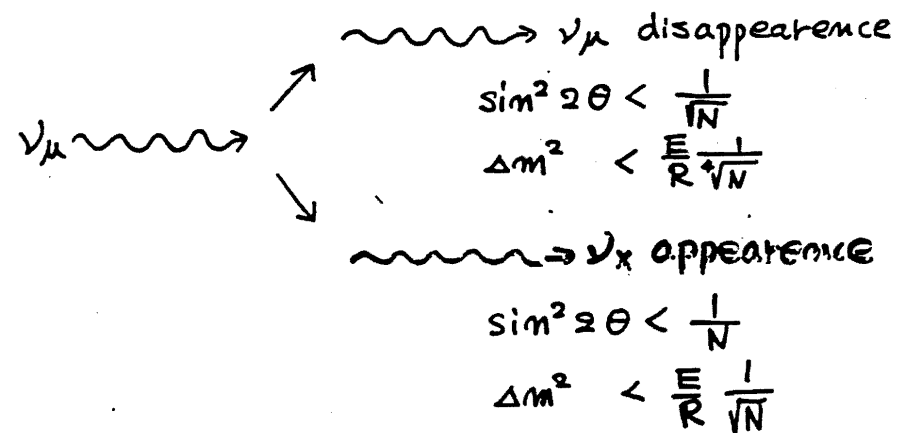 ν_μ disappearence
sin² 2θ < 1/√N
Δm² < E/R 1/∜N
ν_μ
ν_x appearence
sin² 2θ < 1/N
Δm² < E/R 1/√N